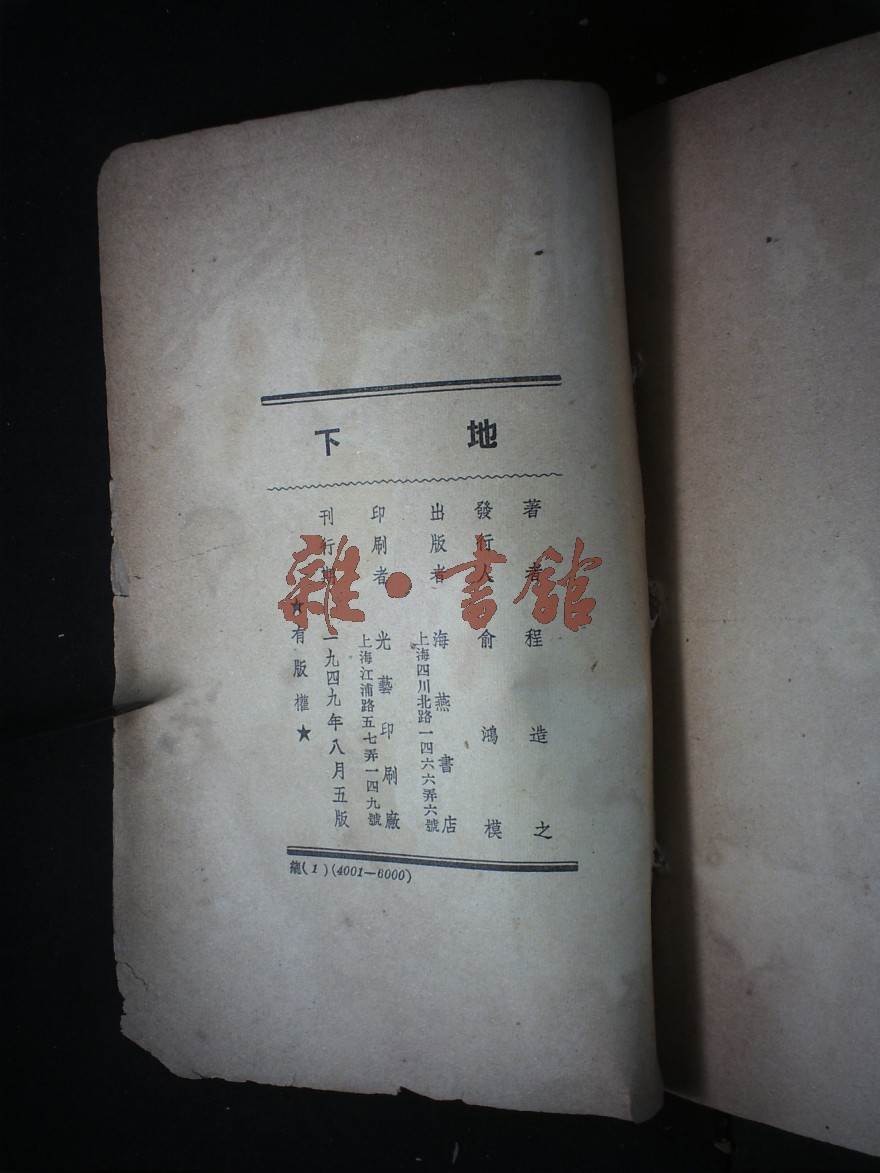 地下
著者 程造之
發行人 俞鴻模
出版者 海燕書店
上海四川北路一四六六弄六號
印刷者 光藝印刷廠
上海江浦路五七弄一四九號
刊行期 一九四九年八月五版
★有版權★
(1)(4001—6000)
雜·書館